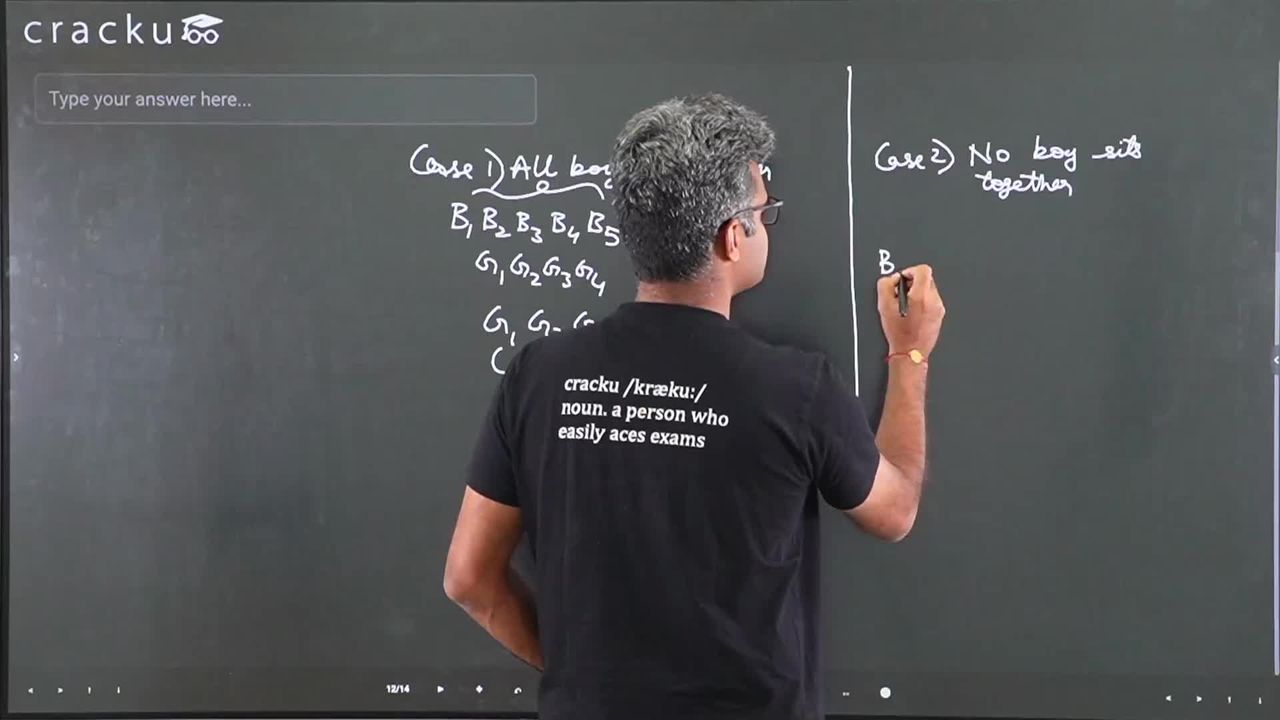 cracku
Type your answer here...
Case 1) All
B₁ B₂ B₃ B₄ B₅
G₁ G₂ G₃ G₄
G₁
Case 2) No boy sits
together
B
cracku /kræku:/
noun. a person who
easily aces exams
12/14